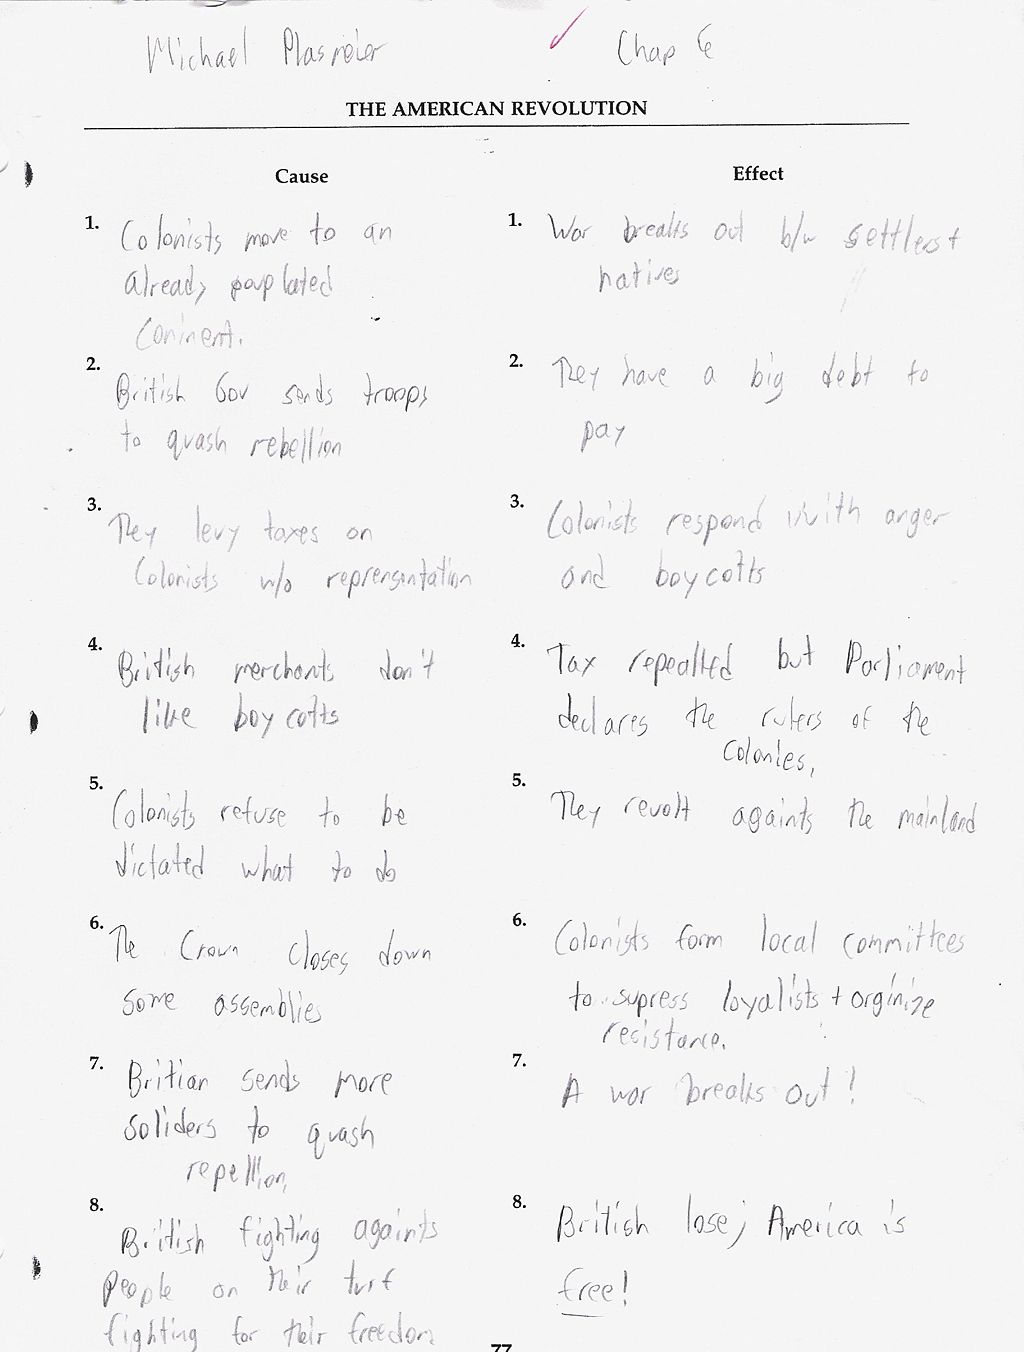 Michael Plasmeier Chap 6
THE AMERICAN REVOLUTION
Cause
Effect
1. Colonists move to an
already pouplated
Coninent.
1. War breaks out b/w settlers +
natives
2. British Gov sends troops
to quash rebellion
2. They have a big debt to
pay
3. They levy taxes on
Colonists w/o reprensentation
3. Colonists respond with anger
and boycotts
4. British merchants don't
like boycotts
4. Tax repealled but Parliament
declares the rulers of the
Colonies,
5. Colonists refuse to be
dictated what to do
5. They revolt againts the mainland
6. The Crown closes down
some assemblies
6. Colonists form local committees
to supress loyalists + orginize
resistance.
7. Britian sends more
soliders to quash
repellion,
7. A war breaks out!
8. British fighting againts
people on their turf
fighting for their freedom
8. British lose; America is
free!
77